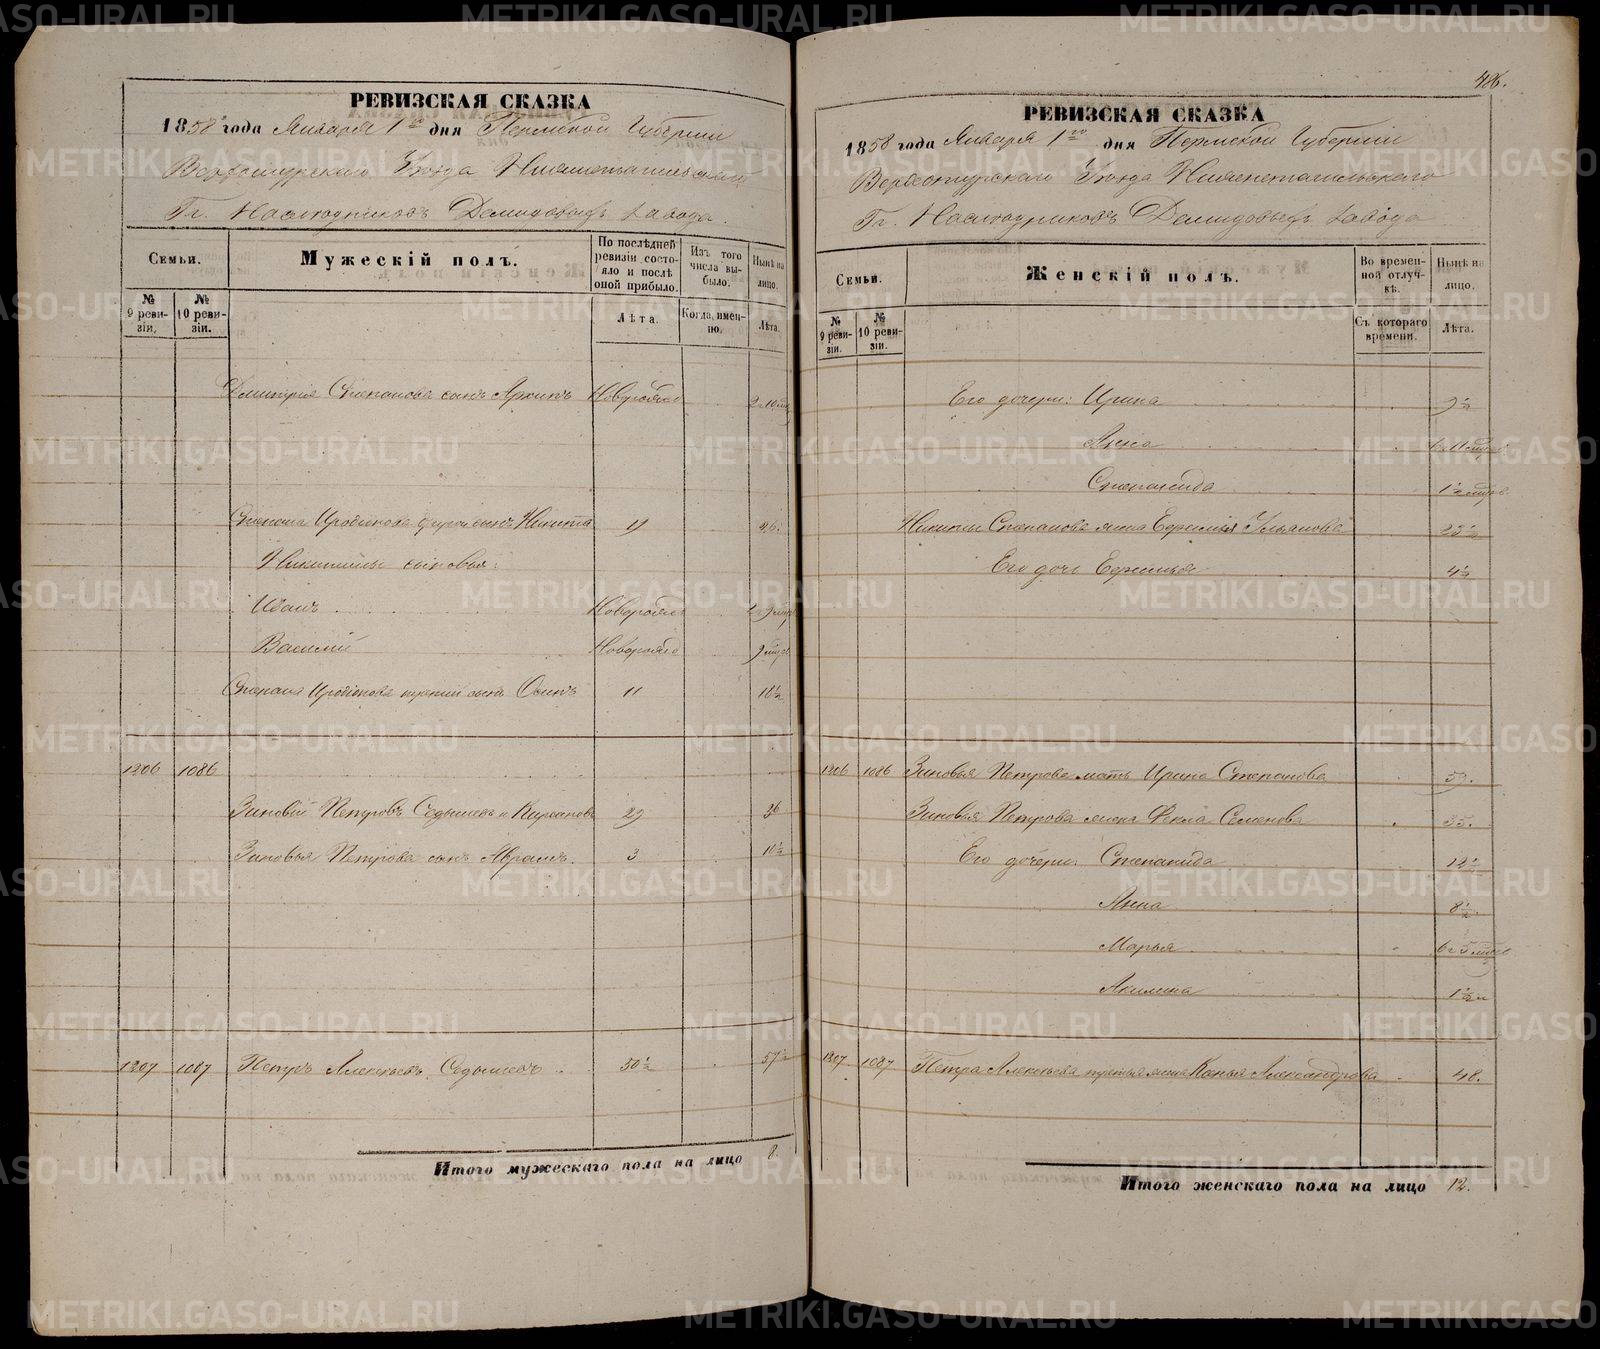 РЕВИЗСКАЯ СКАЗКА
1858 года Января 1го дня Пермской Губерніи
Верхотурскаго Уѣзда Нижнетагильскаго
Гг. Наслѣдниковъ Демидовыхъ завода.
Семьи.
Мужескій полъ.
По послѣдней ревизіи состояло и послѣ оной прибыло.
Изъ того числа выбыло.
Нынѣ на лицо.
№ 9 ревизіи.
№ 10 ревизіи.
Лѣта.
Когда, именно.
Лѣта.
Дмитрія Степанова сынъ Архипъ Новорожд
Степана Иродіонова другой сынъ Никита 19 26.
Никитины сыновья:
Иванъ Новорожд
Василій Новорожд 9 мцовъ
Степана Иродіонова третій сынъ Осипъ 11 18½
1206 1086
Зиновій Петровъ Седышевъ и Кирсановъ 29 36
Зиновья Петрова сынъ Аврамъ. 3 10½
1207 1087 Петръ Алексѣевъ Седышевъ 50½ 57½
Итого мужескаго пола на лицо 8.
486.
РЕВИЗСКАЯ СКАЗКА
1858 года Января 1го дня Пермской Губерніи
Верхотурскаго Уѣзда Нижнетагильскаго
Гг. Наслѣдниковъ Демидовыхъ завода
Семьи.
Женскій полъ.
Во временной отлучкѣ.
Нынѣ на лицо.
№ 9 ревизіи.
№ 10 ревизіи.
Съ котораго времени.
Лѣта.
Его дочери: Ирина 9½
Анна
Степанида
Никиты Степанова жена Ефимья Ульянова 25½
Его дочь Ефимья 4½
1206 1086 Зиновья Петрова мать Ирина Степанова 59.
Зиновья Петрова жена Фекла Семенова 35.
Его дочери: Степанида 12½
Анна 8½.
Марья
Акилина
1207 1087 Петра Алексѣева третья жена Ксенья Александрова 48.
Итого женскаго пола на лицо 12.
METRIKI.GASO-URAL.RU